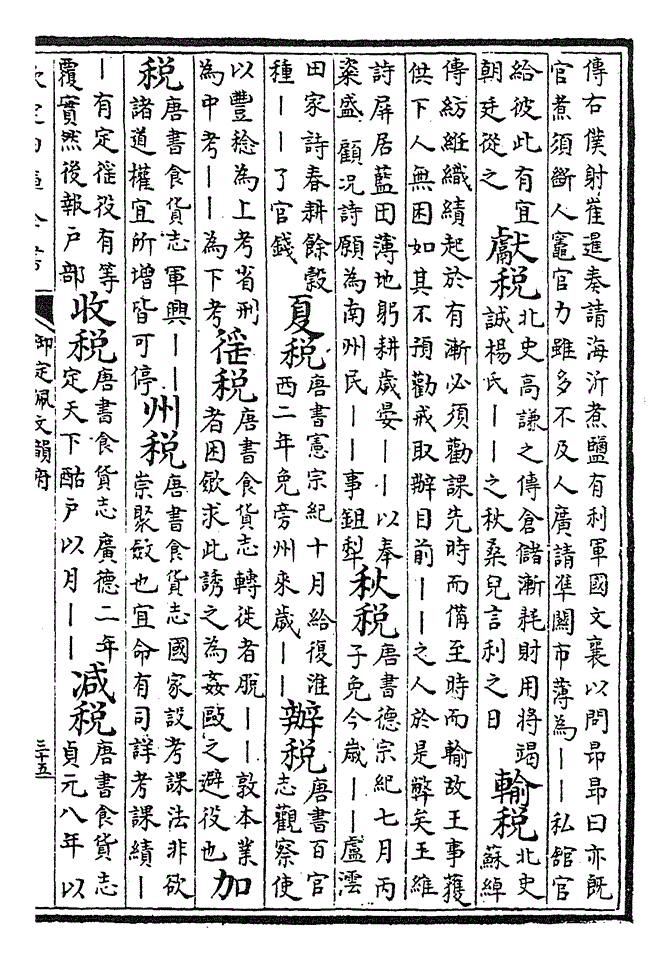 傳右僕射崔暹奏請海沂煮鹽有利軍國文襄以問昂昂曰亦既
官煮須斷人竈官力雖多不及人廣請準關市薄為——私館官
給彼此有宜
朝廷從之
獻税
北史高謙之傳倉儲漸耗財用將竭
誠楊氏——之秋桑兒言利之日
輸税
北史
蘇綽
傳紡紝織績起於有漸必須勸課先時而備至時而輸故王事獲
供下人無困如其不預勸戒取辦目前——之人於是弊矣王維
詩屏居藍田薄地躬耕歲晏——以奉
粢盛 顧况詩願為南州民——事鉏犁
秋税
唐書德宗紀七月丙
子免今歲——盧雲
田家詩春耕餘穀
種——了官錢
夏税
唐書憲宗紀十月給復淮
西二年免旁州來歲——
辦税
唐書百官
志觀察使
以豐稔為上考省刑
為中考——為下考
徭税
唐書食貨志轉徙者脱——敦本業
者困斂求此誘之為姦毆之避役也
加
税
唐書食貨志軍興——
諸道權宜所增皆可停
州税
唐書食貨志國家設考課法非欲
崇聚斂也宜命有司詳考課績—
—有定徭役有等
覆實然後報户部
收税
唐書食貨志廣德二年
定天下酤户以月——
減税
唐書食貨志
貞元八年以
欽定四庫全書
御定佩文韻府
三十五